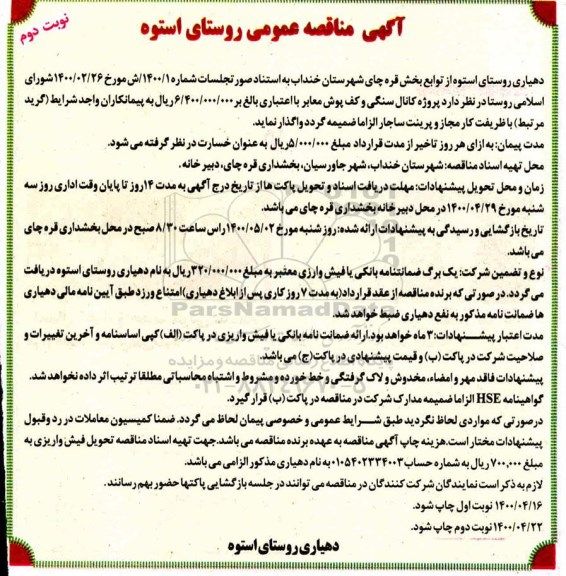 نوبت دوم
آگهی مناقصه عمومی روستای استوه
دهیاری روستای استوه از توابع بخش قره چای شهرستان خنداب به استناد صورتجلسات شماره ۱۴۰۰/۱/ش مورخ ۱۴۰۰/۰۲/۲۶ شورای
اسلامی روستا در نظر دارد پروژه کانال سنگی و کف پوش معابر با اعتباری بالغ بر ۶/۴۰۰/۰۰۰/۰۰۰ ریال به پیمانکاران واجد شرایط (گرید
مرتبط) با ظریفت کار مجاز و پرینت ساجار الزاما ضمیمه گردد واگذار نماید.
مدت پیمان: به ازای هر روز تاخیر از مدت قرارداد مبلغ ۵/۰۰۰/۰۰۰ ریال به عنوان خسارت در نظر گرفته می شود.
محل تهیه اسناد مناقصه: شهرستان خنداب، شهر جاورسیان، بخشداری قره چای، دبیر خانه.
زمان و محل تحویل پیشنهادات: مهلت دریافت اسناد و تحویل پاکت ها از تاریخ درج آگهی به مدت ۱۴ روز تا پایان وقت اداری روز سه
شنبه مورخ ۱۴۰۰/۰۴/۲۹ در محل دبیر خانه بخشداری قره چای می باشد.
تاریخ بازگشایی و رسیدگی به پیشنهادات ارائه شده: روز شنبه مورخ ۱۴۰۰/۰۵/۰۲ راس ساعت ۸/۳۰ صبح در محل بخشداری قره چای
می باشد.
نوع و تضمین شرکت: یک برگ ضمانتنامه بانکی یا فیش وارزی معتبر به مبلغ ۳۲۰/۰۰۰/۰۰۰ ریال به نام دهیاری روستای استوه دریافت
می گردد. در صورتی که برنده مناقصه از عقد قرارداد (به مدت ۷ روز کاری پس از ابلاغ دهیاری) امتناع ورزد طبق آیین نامه مالی دهیاری
ها ضمانت نامه مذکور به نفع دهیاری ضبط خواهد شد.
مدت اعتبار پیشنهادات: ۳ ماه خواهد بود. ارائه ضمانت نامه بانکی یا فیش واریزی در پاکت (الف) کپی اساسنامه و آخرین تغییرات و
صلاحیت شرکت در پاکت (ب) و قیمت پیشنهادی در پاکت (ج) می باشد.
پیشنهادات فاقد مهر و امضاء، مخدوش و لاک گرفتگی و خط خورده و مشروط و اشتباه محاسباتی مطلقا ترتیب اثر داده نخواهد شد.
گواهینامه HSE الزاما ضمیمه مدارک شرکت در مناقصه در پاکت (ب) قرار گیرد.
درصورتی که مواردی لحاظ نگردید طبق شرایط عمومی و خصوصی پیمان لحاظ می گردد. ضمنا کمیسیون معاملات در رد و قبول
پیشنهادات مختار است. هزینه چاپ آگهی مناقصه به عهده برنده مناقصه می باشد. جهت تهیه اسناد مناقصه تحویل فیش واریزی به
مبلغ ۷۰۰,۰۰۰ ریال به شماره حساب ۰۱۰۵۴۰۲۳۳۴۰۰۳ به نام دهیاری مذکور الزامی می باشد.
لازم به ذکر است نمایندگان شرکت کنندگان در مناقصه می توانند در جلسه بازگشایی پاکتها حضور بهم رسانند.
۱۴۰۰/۰۴/۱۶ نوبت اول چاپ شود.
۱۴۰۰/۰۴/۲۲ نوبت دوم چاپ شود.
دهیاری روستای استوه
ParsNamadData